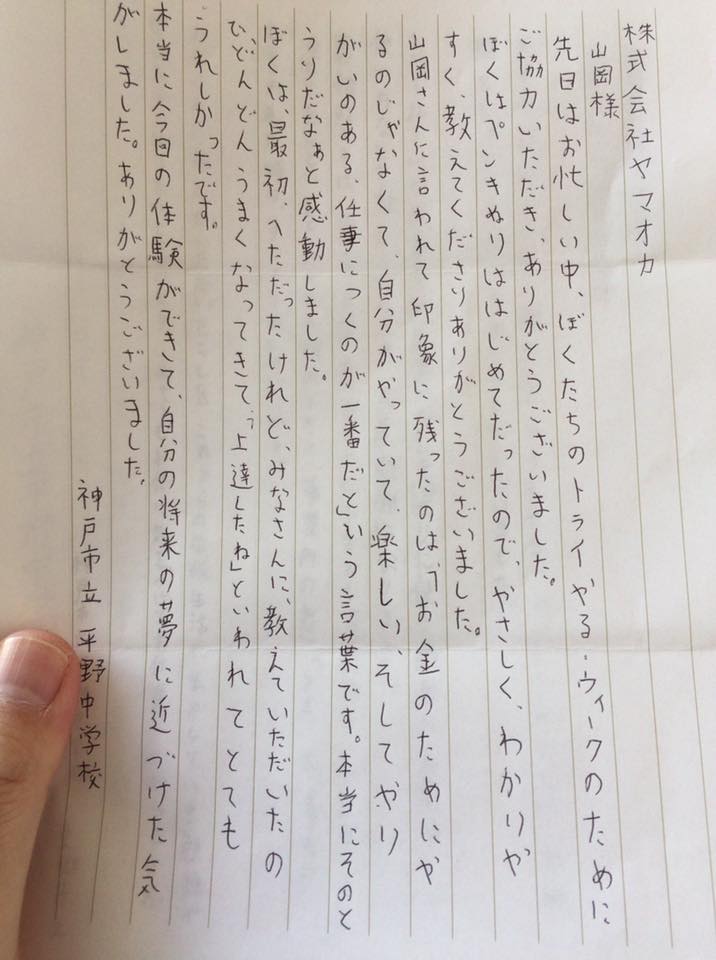 株式会社ヤマオカ
山岡様
先日はお忙しい中、ぼくたちのトライやる・ウィークのために
ご協力いただき、ありがとうございました。
ぼくはペンきぬりははじめてだったので、やさしく、わかりや
すく、教えてくださりありがとうございました。
山岡さんに言われて印象に残ったのは、「お金のためにや
るのじゃなくて、自分がやっていて、楽しい、そしてやり
がいのある、仕事につくのが一番だと」いう言葉です。本当にそのと
うりだなぁと感動しました。
ぼくは、最初、へただったけれど、みなさんに、教えていただいたの
で、どんどんうまくなってきて、「上達したね」といわれてとても
うれしかったです。
本当に今回の体験ができて、自分の将来の夢に近づけた気
がしました。ありがとうございました。
神戸市立 平野中学校